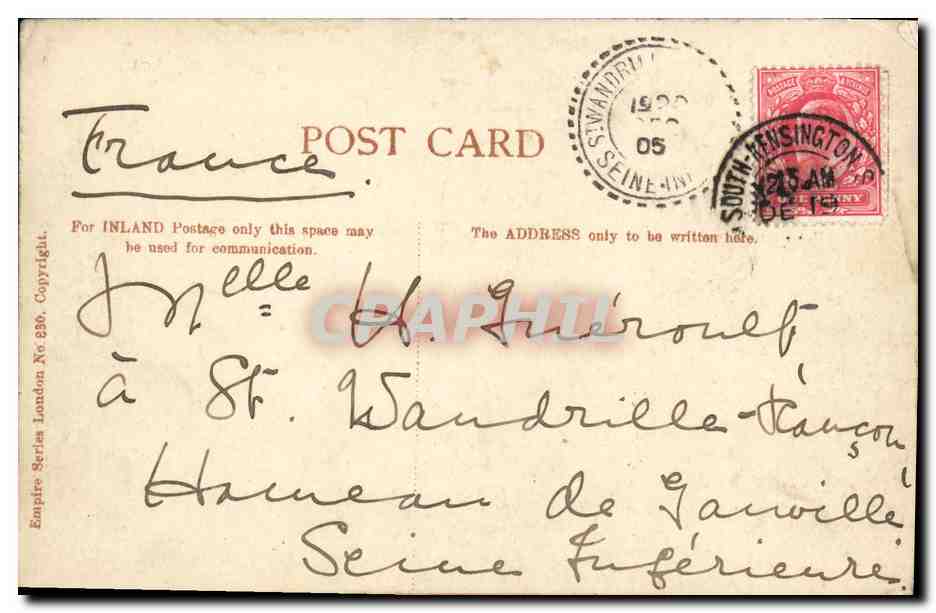 France.
POST CARD
ST WANDRILLE
05
SEINE-INF
SOUTH-KENSINGTON
.15 AM
DE 19
POSTAGE & REVENUE
For INLAND Postage only this space may
be used for communication.
The ADDRESS only to be written here.
Melle H. Guéroult
à St. Wandrille-Rançon
Hameau de Gauville
Seine Inférieure.
CPAPHIL
Empire Series London No. 830. Copyright.